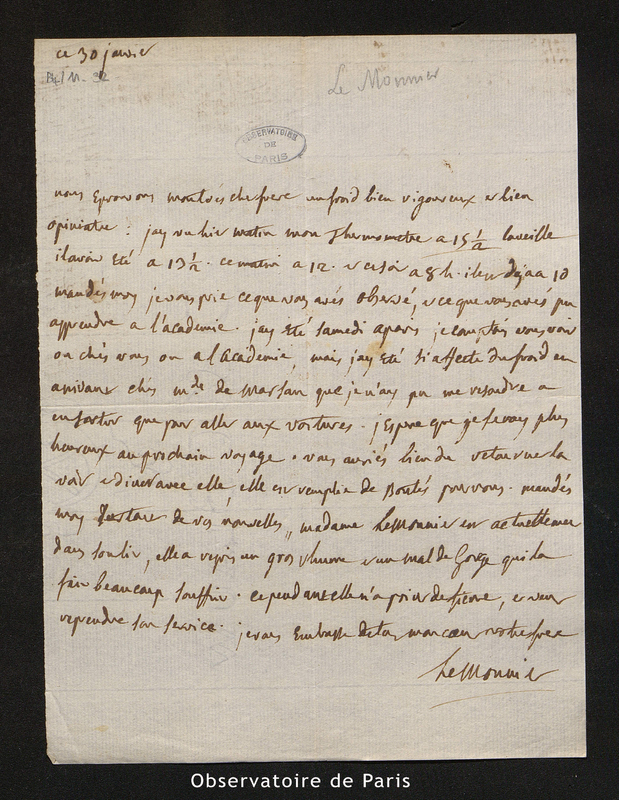 ce 30 janvier
B4/11-32
Le Monnier
OBSERVATOIRE
DE
PARIS
nous eprouvons mon tres cher frere un froid bien vigoureux et bien
opiniatre : jay vu hier matin mon Thermometre a 15 1/2 la veille
il avoit été a 13 1/2. ce matin a 12. et ce soir a 8 h. il est deja a 10
mandés moy je vous prie ce que vous avés observé, et ce que vous avés pu
apprendre a l'académie. jay été samedi a paris je comptois vous voir
ou chés vous ou a l'académie, mais jay été si affecté du froid en
arrivant chés mde de Marsan que je n'ay pu me resoudre a
en sortir que pour aller aux voitures. j'espere que je seray plus
heureux au prochain voyage. vous auriés bien du venir la
voir et diner avec elle, elle est remplie de bontés pour vous. mandés
moy de vos nouvelles, madame LeMonnier est actuellement
dans son lit, elle a repris un gros rhume et un mal de gorge qui la
fait beaucoup souffrir. cependant elle n'a point de fievre, et veut
reprendre son service. je vous embrasse de tout mon coeur notre frere
LeMonnier
Observatoire de Paris